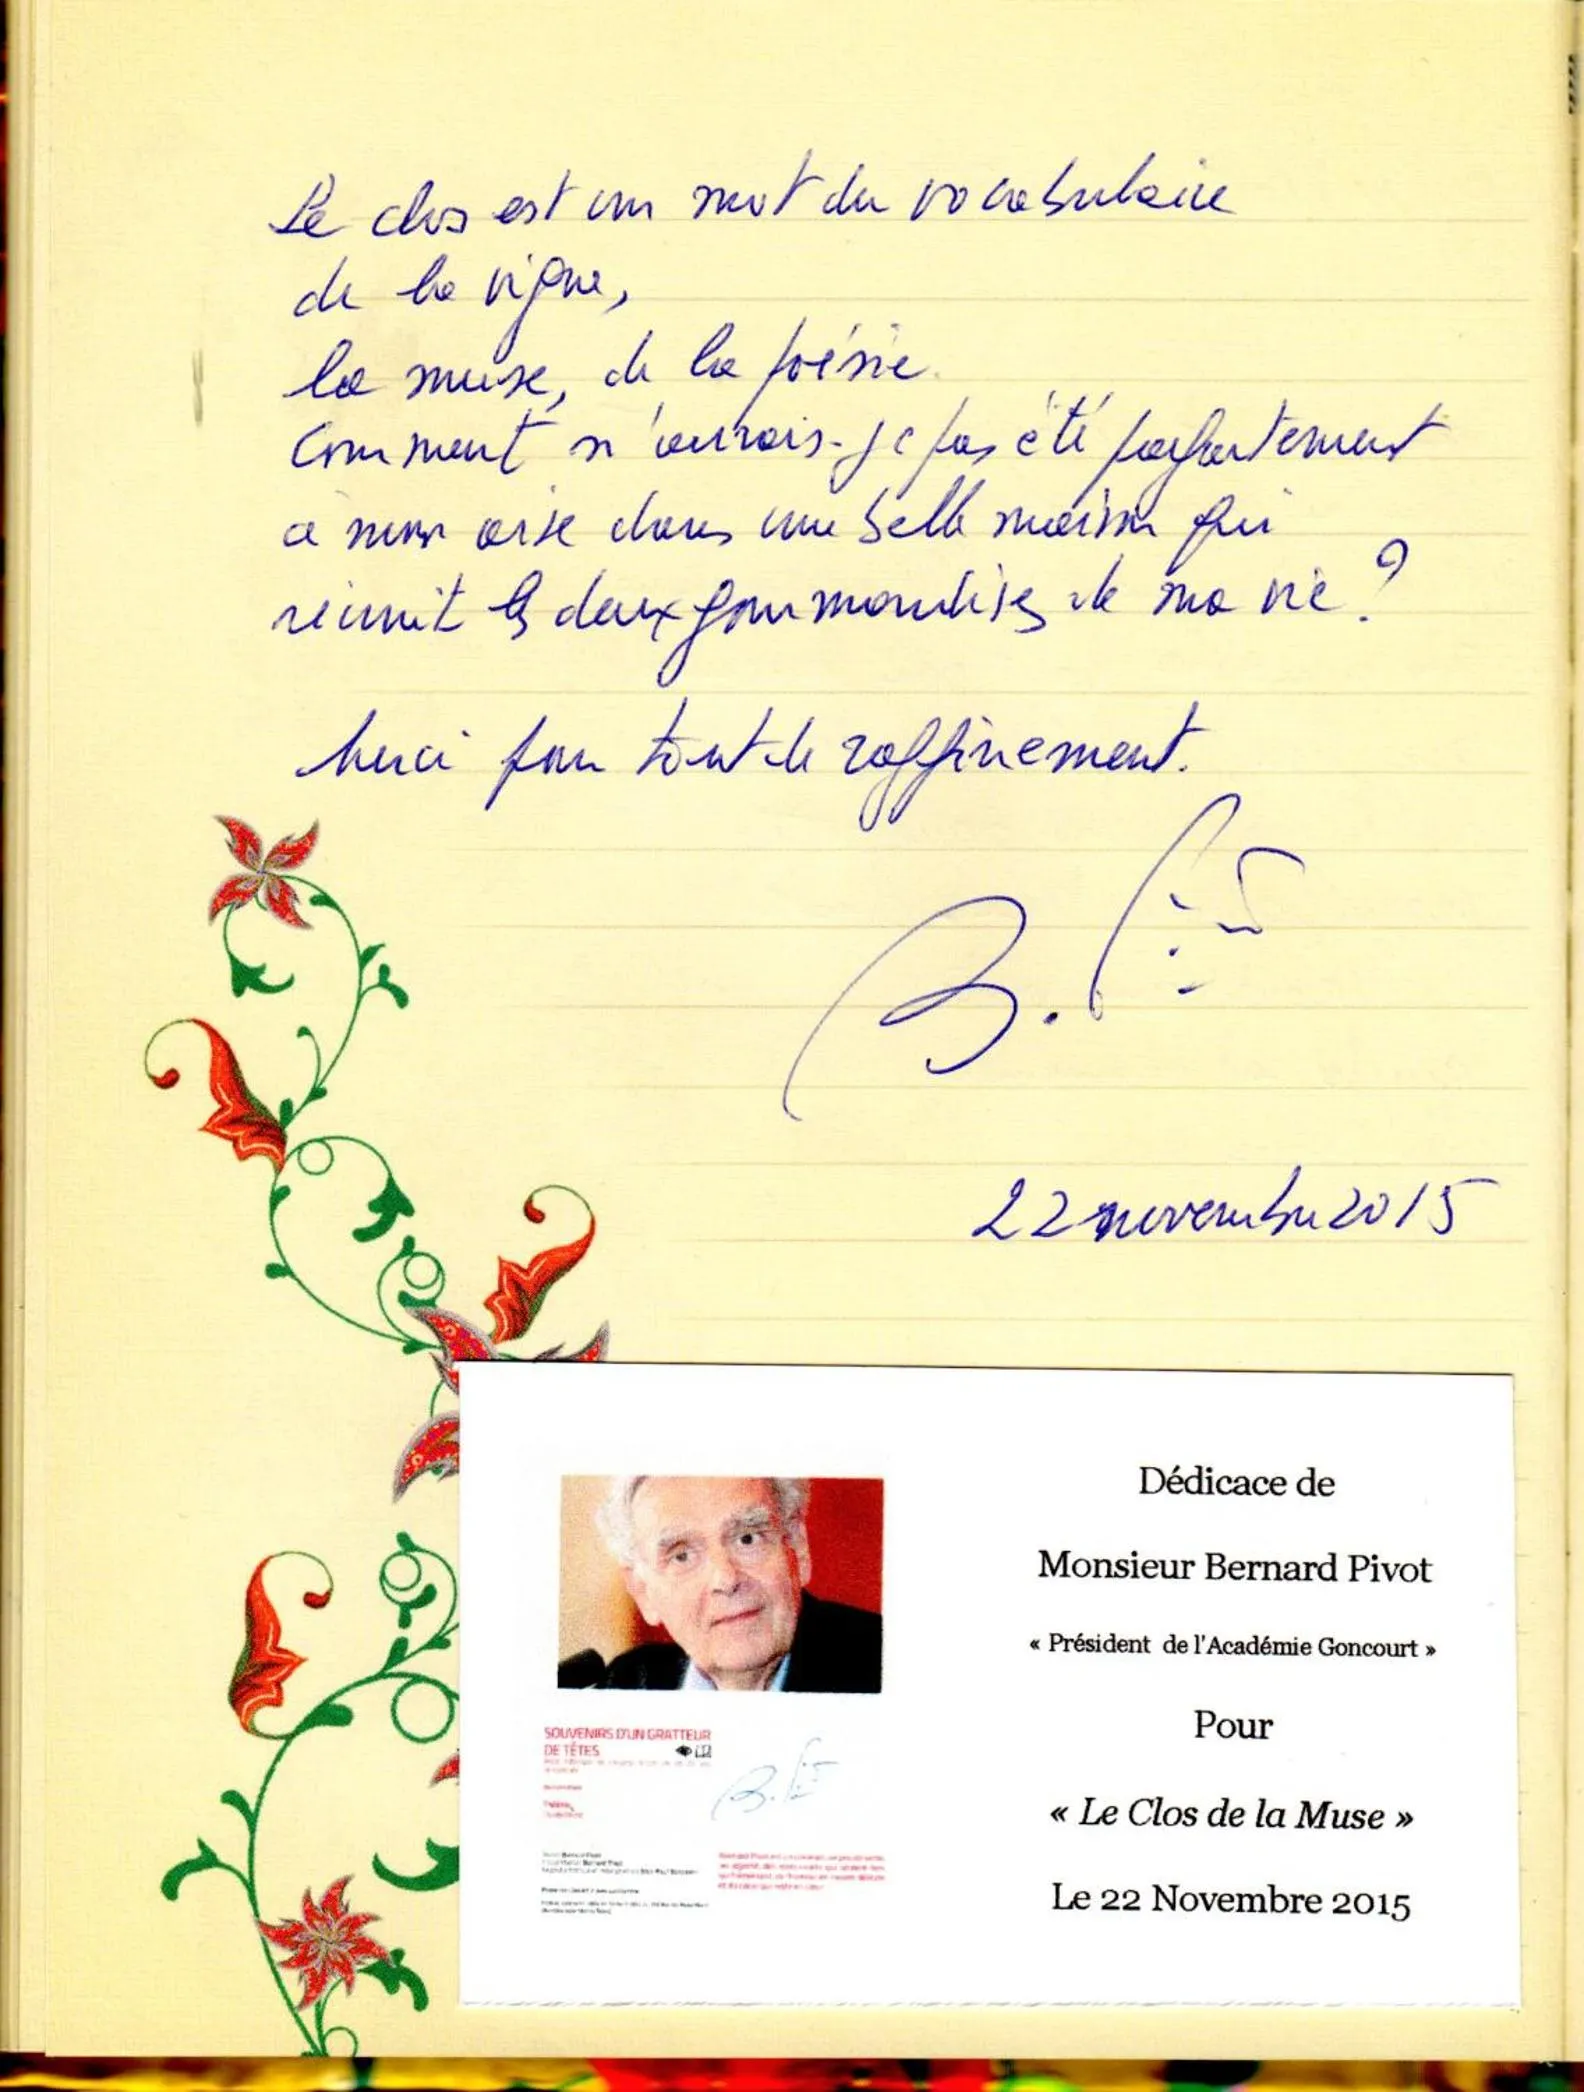 Le clos est un mot du vocabulaire
de la vigne,
la muse, de la poésie.
Comment n'aurais-je pas été parfaitement
à mon aise dans une belle maison qui
réunit les deux gourmandises de ma vie ?
Merci pour tout le raffinement.
B. Pivot
22 novembre 2015
Dédicace de
Monsieur Bernard Pivot
« Président de l'Académie Goncourt »
Pour
« Le Clos de la Muse »
Le 22 Novembre 2015
SOUVENIRS D'UN GRATTEUR
DE TÊTES
B. Pivot